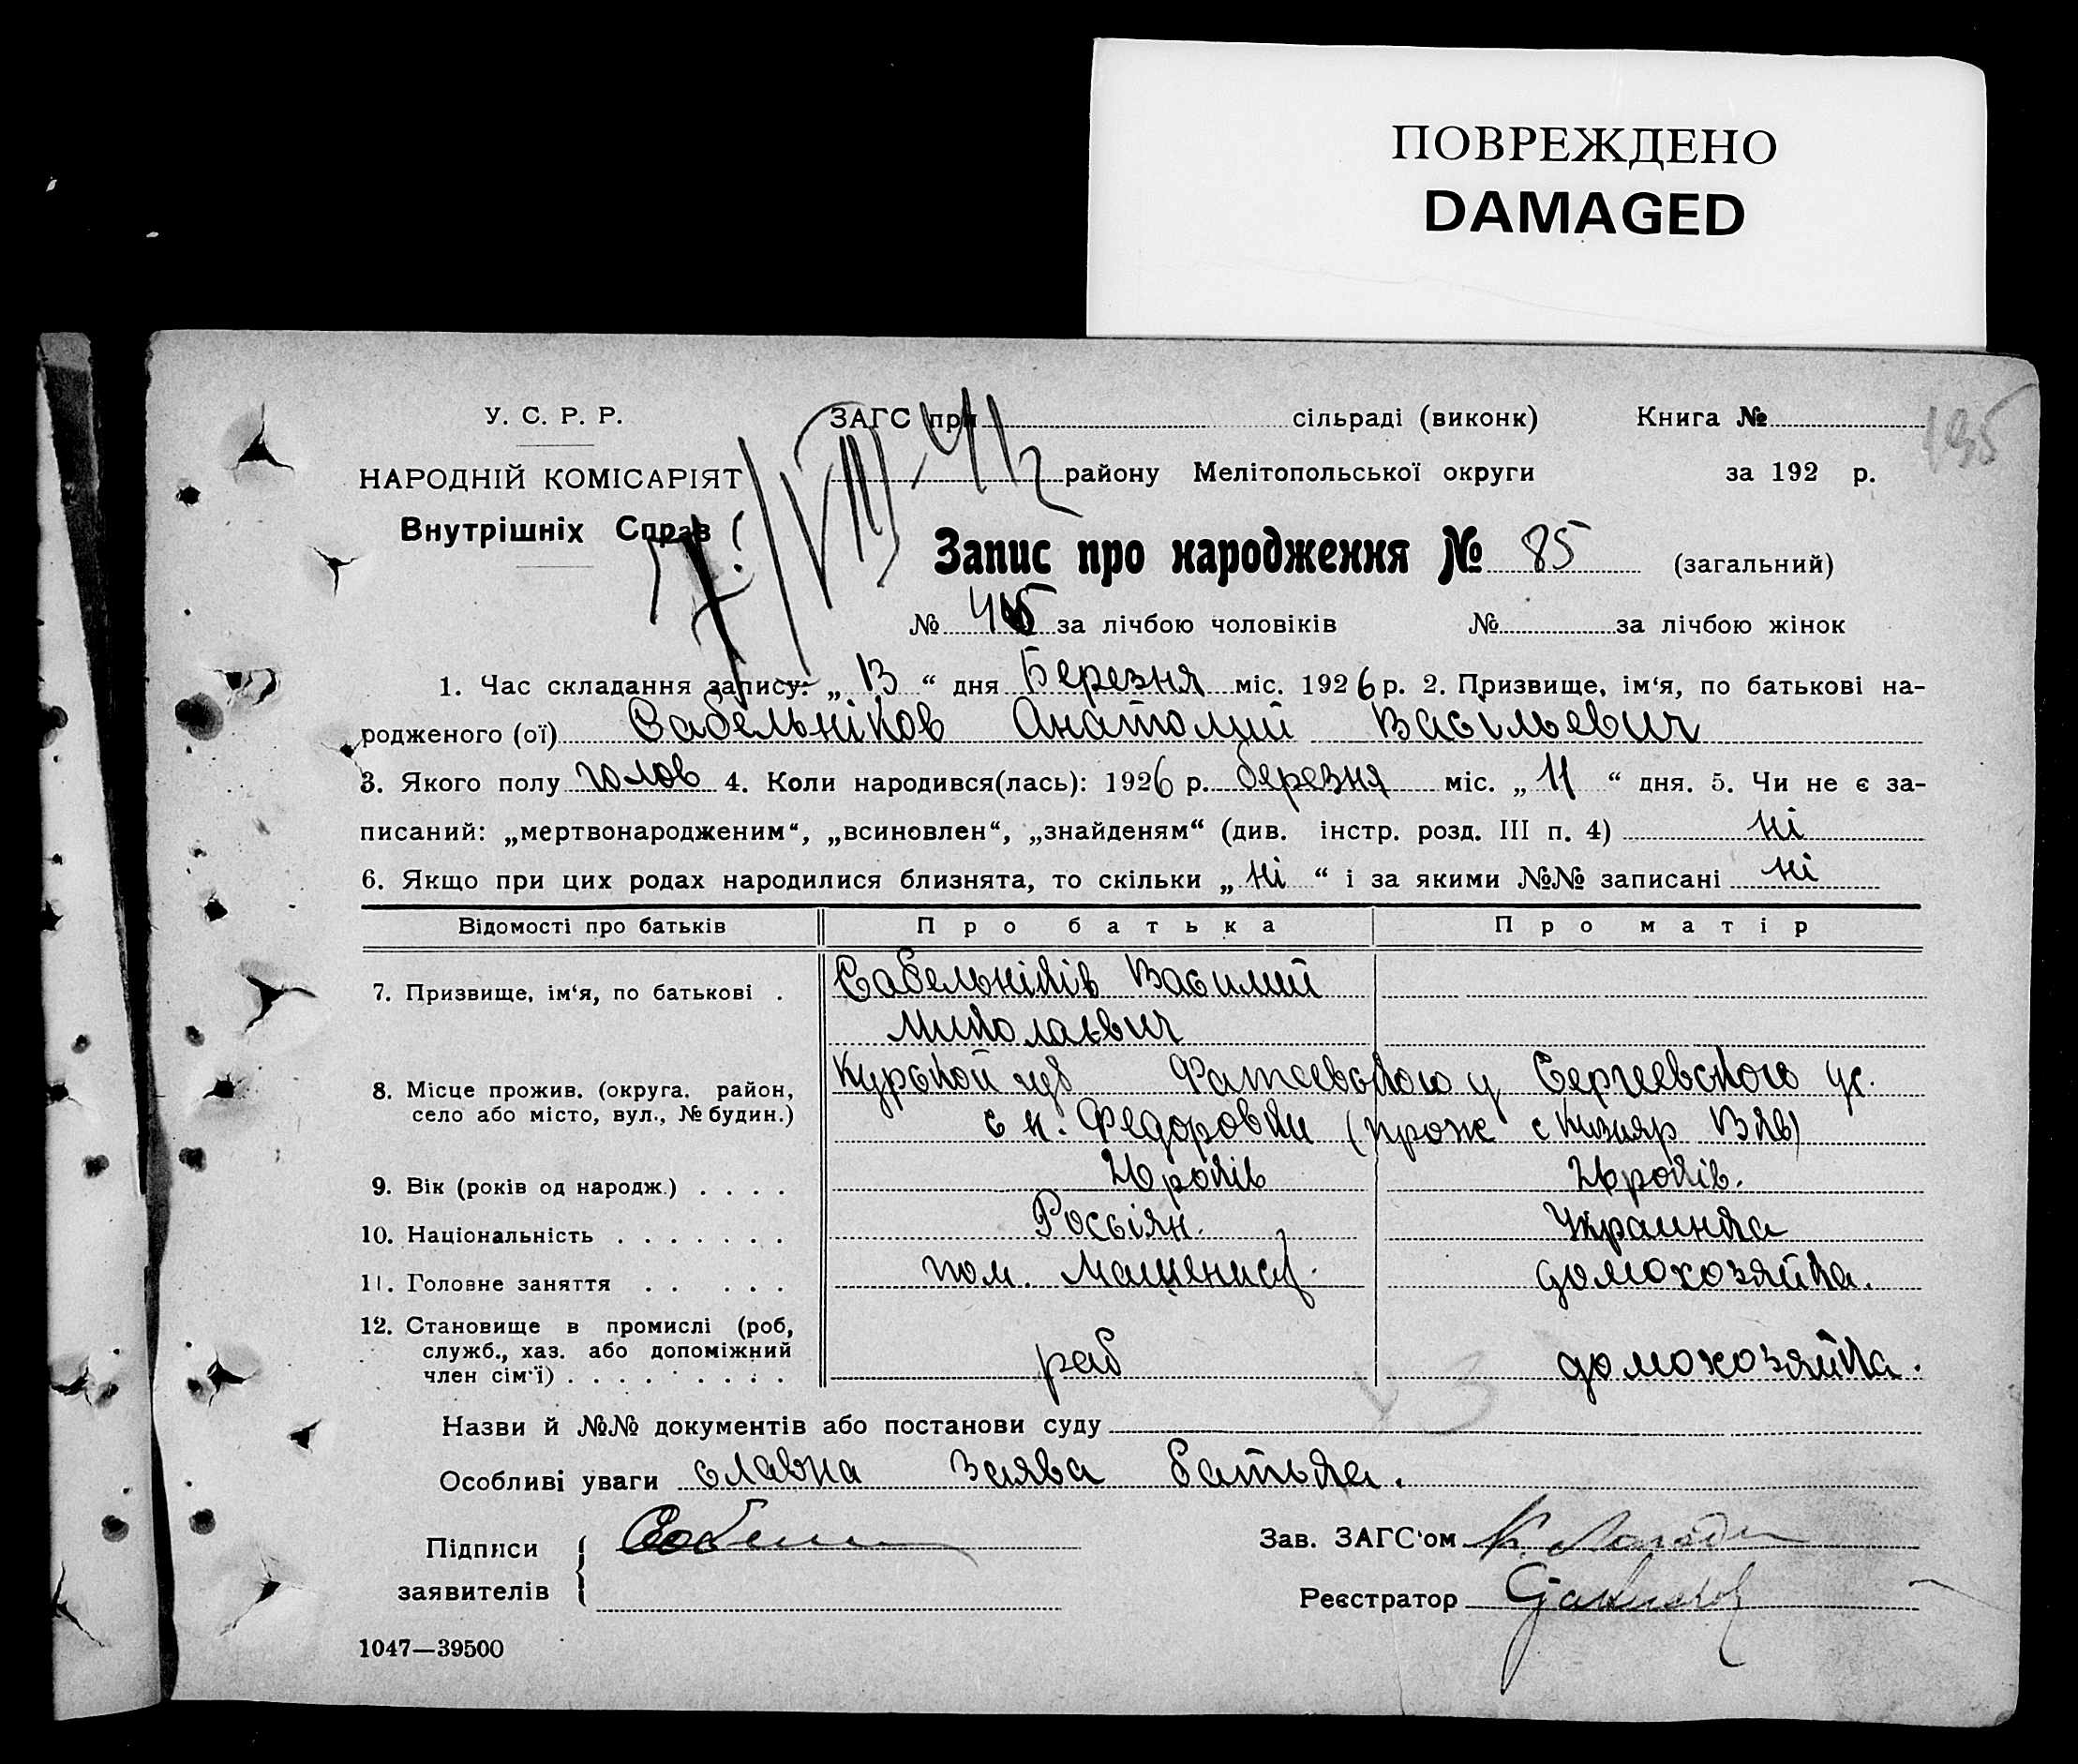 ПОВРЕЖДЕНО
DAMAGED
195
У. С. Р. Р.
НАРОДНІЙ КОМІСАРІЯТ
Внутрішніх Справ
7/VIII 42
ЗАГС при сільраді (виконк) Книга №
району Мелітопольської округи за 192 р.
Запис про народження № 85 (загальний)
№ 45 за лічбою чоловіків № за лічбою жінок
1. Час складання запису: „ 13 “ дня Березня міс. 1926 р. 2. Призвище, ім‘я, по батькові на-
родженого (ої) Сабельніков Анатолий Васільевич
3. Якого полу чолов 4. Коли народився(лась): 1926 р. березня міс. „ 11 “ дня. 5. Чи не є за-
писаний: „мертвонародженим“, „всиновлен“, „знайденям“ (див. інстр. розд. III п. 4) ні
6. Якщо при цих родах народилися близнята, то скільки „ ні “ і за якими №№ записані ні
Відомості про батьків Про батька Про матір
7. Призвище, ім‘я, по батькові . Сабельніків Василий
Миколаєвич
8. Місце прожив. (округа. район, Курской губ Фатеевского у Сергеевского
село або місто, вул., № будин.) с н. Федоровки (прож с Кизияр
9. Вік (років од народж.) . . . . років років.
10. Національність . . . . . . . Россіян. Украинка
11. Головне заняття . . . . . пом. Машенист. домохозяйка.
12. Становище в промислі (роб,
служб., хаз. або допоміжний
член сім‘ї) . . . . . . . . . раб домохозяйка.
Назви й №№ документів або постанови суду
Особливі уваги заява батька.
Підписи
заявителів
Зав. ЗАГС‘ом
Реєстратор
1047—39500